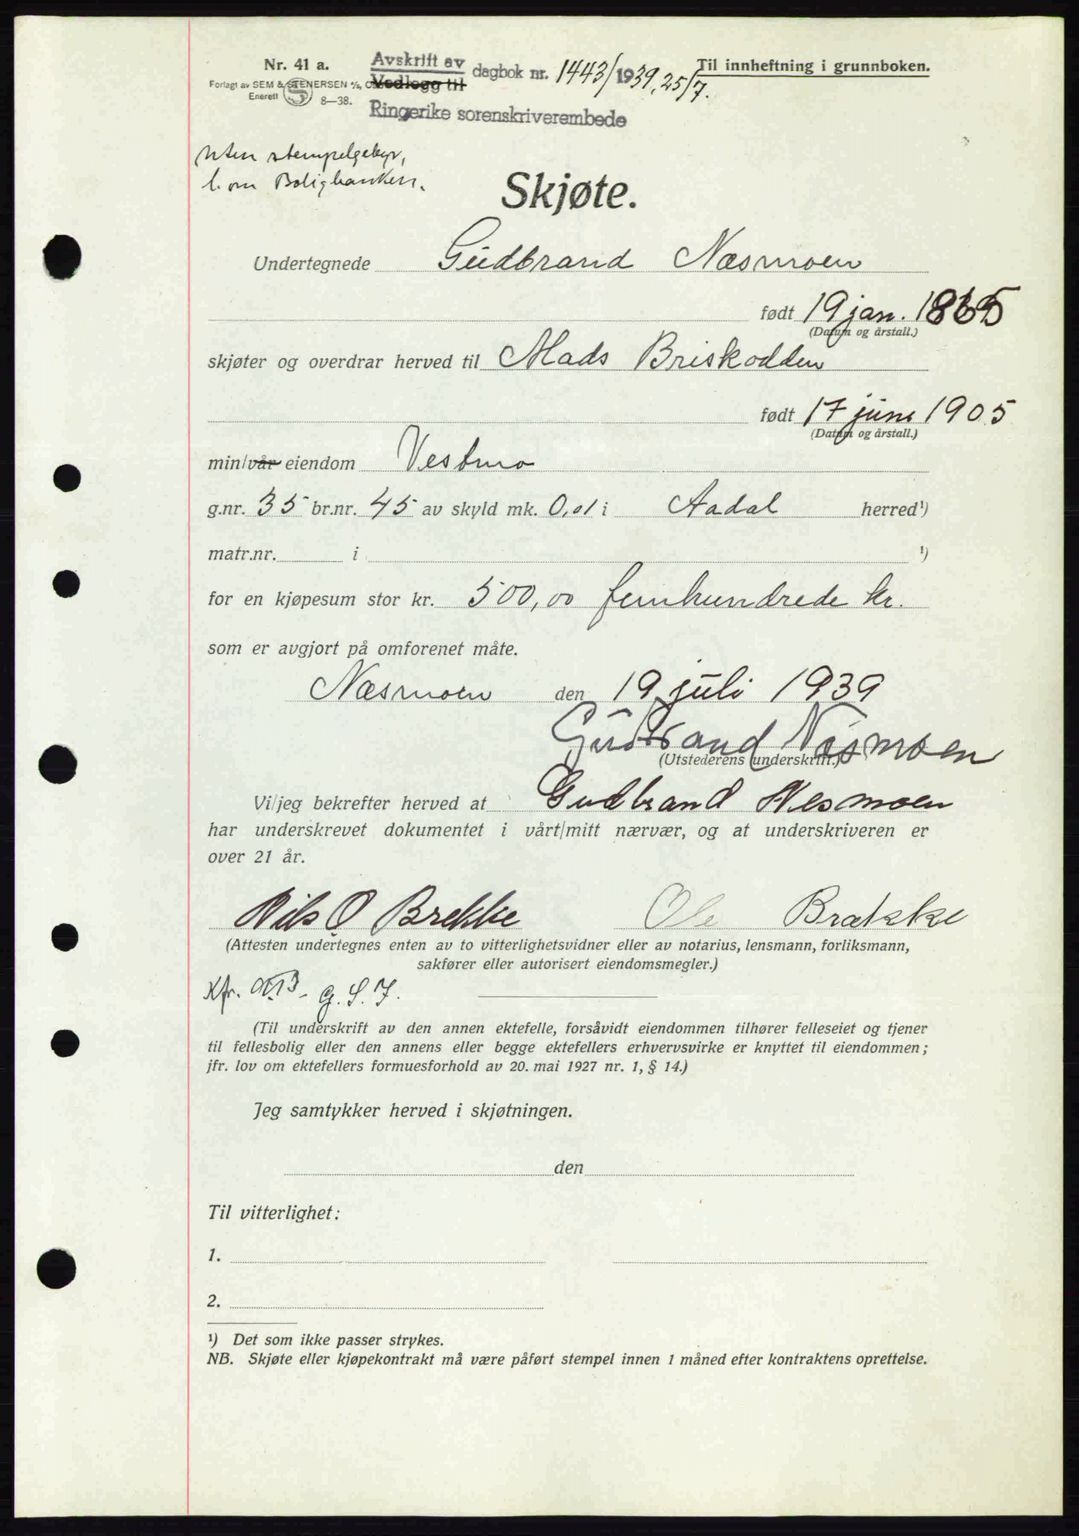 Nr. 41 a.
Avskrift av
Vedlegg til
dagbok nr. 1443/1939, 25/7.
Til innheftning i grunnboken.
Forlagt av SEM & STENERSEN A/S,
Enerett 8—38.
Ringerike sorenskriverembede
Uten stempelgebyr,
l. om Boligbanken.
Skjøte.
Undertegnede Gudbrand Næsmoen
født 19 jan. 1865
(Datum og årstall.)
skjøter og overdrar herved til Mads Briskodden
født 17 juni 1905
(Datum og årstall.)
min/vår eiendom Vestmo
g.nr. 35 br.nr. 45 av skyld mk. 0,01 i Aadal herred¹)
matr.nr. i ¹)
for en kjøpesum stor kr. 500,00 femhundrede kr.
som er avgjort på omforenet måte.
Næsmoen den 19 juli 1939
Gudbrand Næsmoen
(Utstederens underskrift.)
Vi/jeg bekrefter herved at Gudbrand Nesmoen
har underskrevet dokumentet i vårt/mitt nærvær, og at underskriveren er
over 21 år.
Nils O Brekke Ole Brække
(Attesten undertegnes enten av to vitterlighetsvidner eller av notarius, lensmann, forliksmann,
sakfører eller autorisert eiendomsmegler.)
Kfr.
(Til underskrift av den annen ektefelle, forsåvidt eiendommen tilhører felleseiet og tjener
til fellesbolig eller den annens eller begge ektefellers erhvervsvirke er knyttet til eiendommen;
jfr. lov om ektefellers formuesforhold av 20. mai 1927 nr. 1, § 14.)
Jeg samtykker herved i skjøtningen.
den
Til vitterlighet:
1.
2.
¹) Det som ikke passer strykes.
NB. Skjøte eller kjøpekontrakt må være påført stempel innen 1 måned efter kontraktens oprettelse.